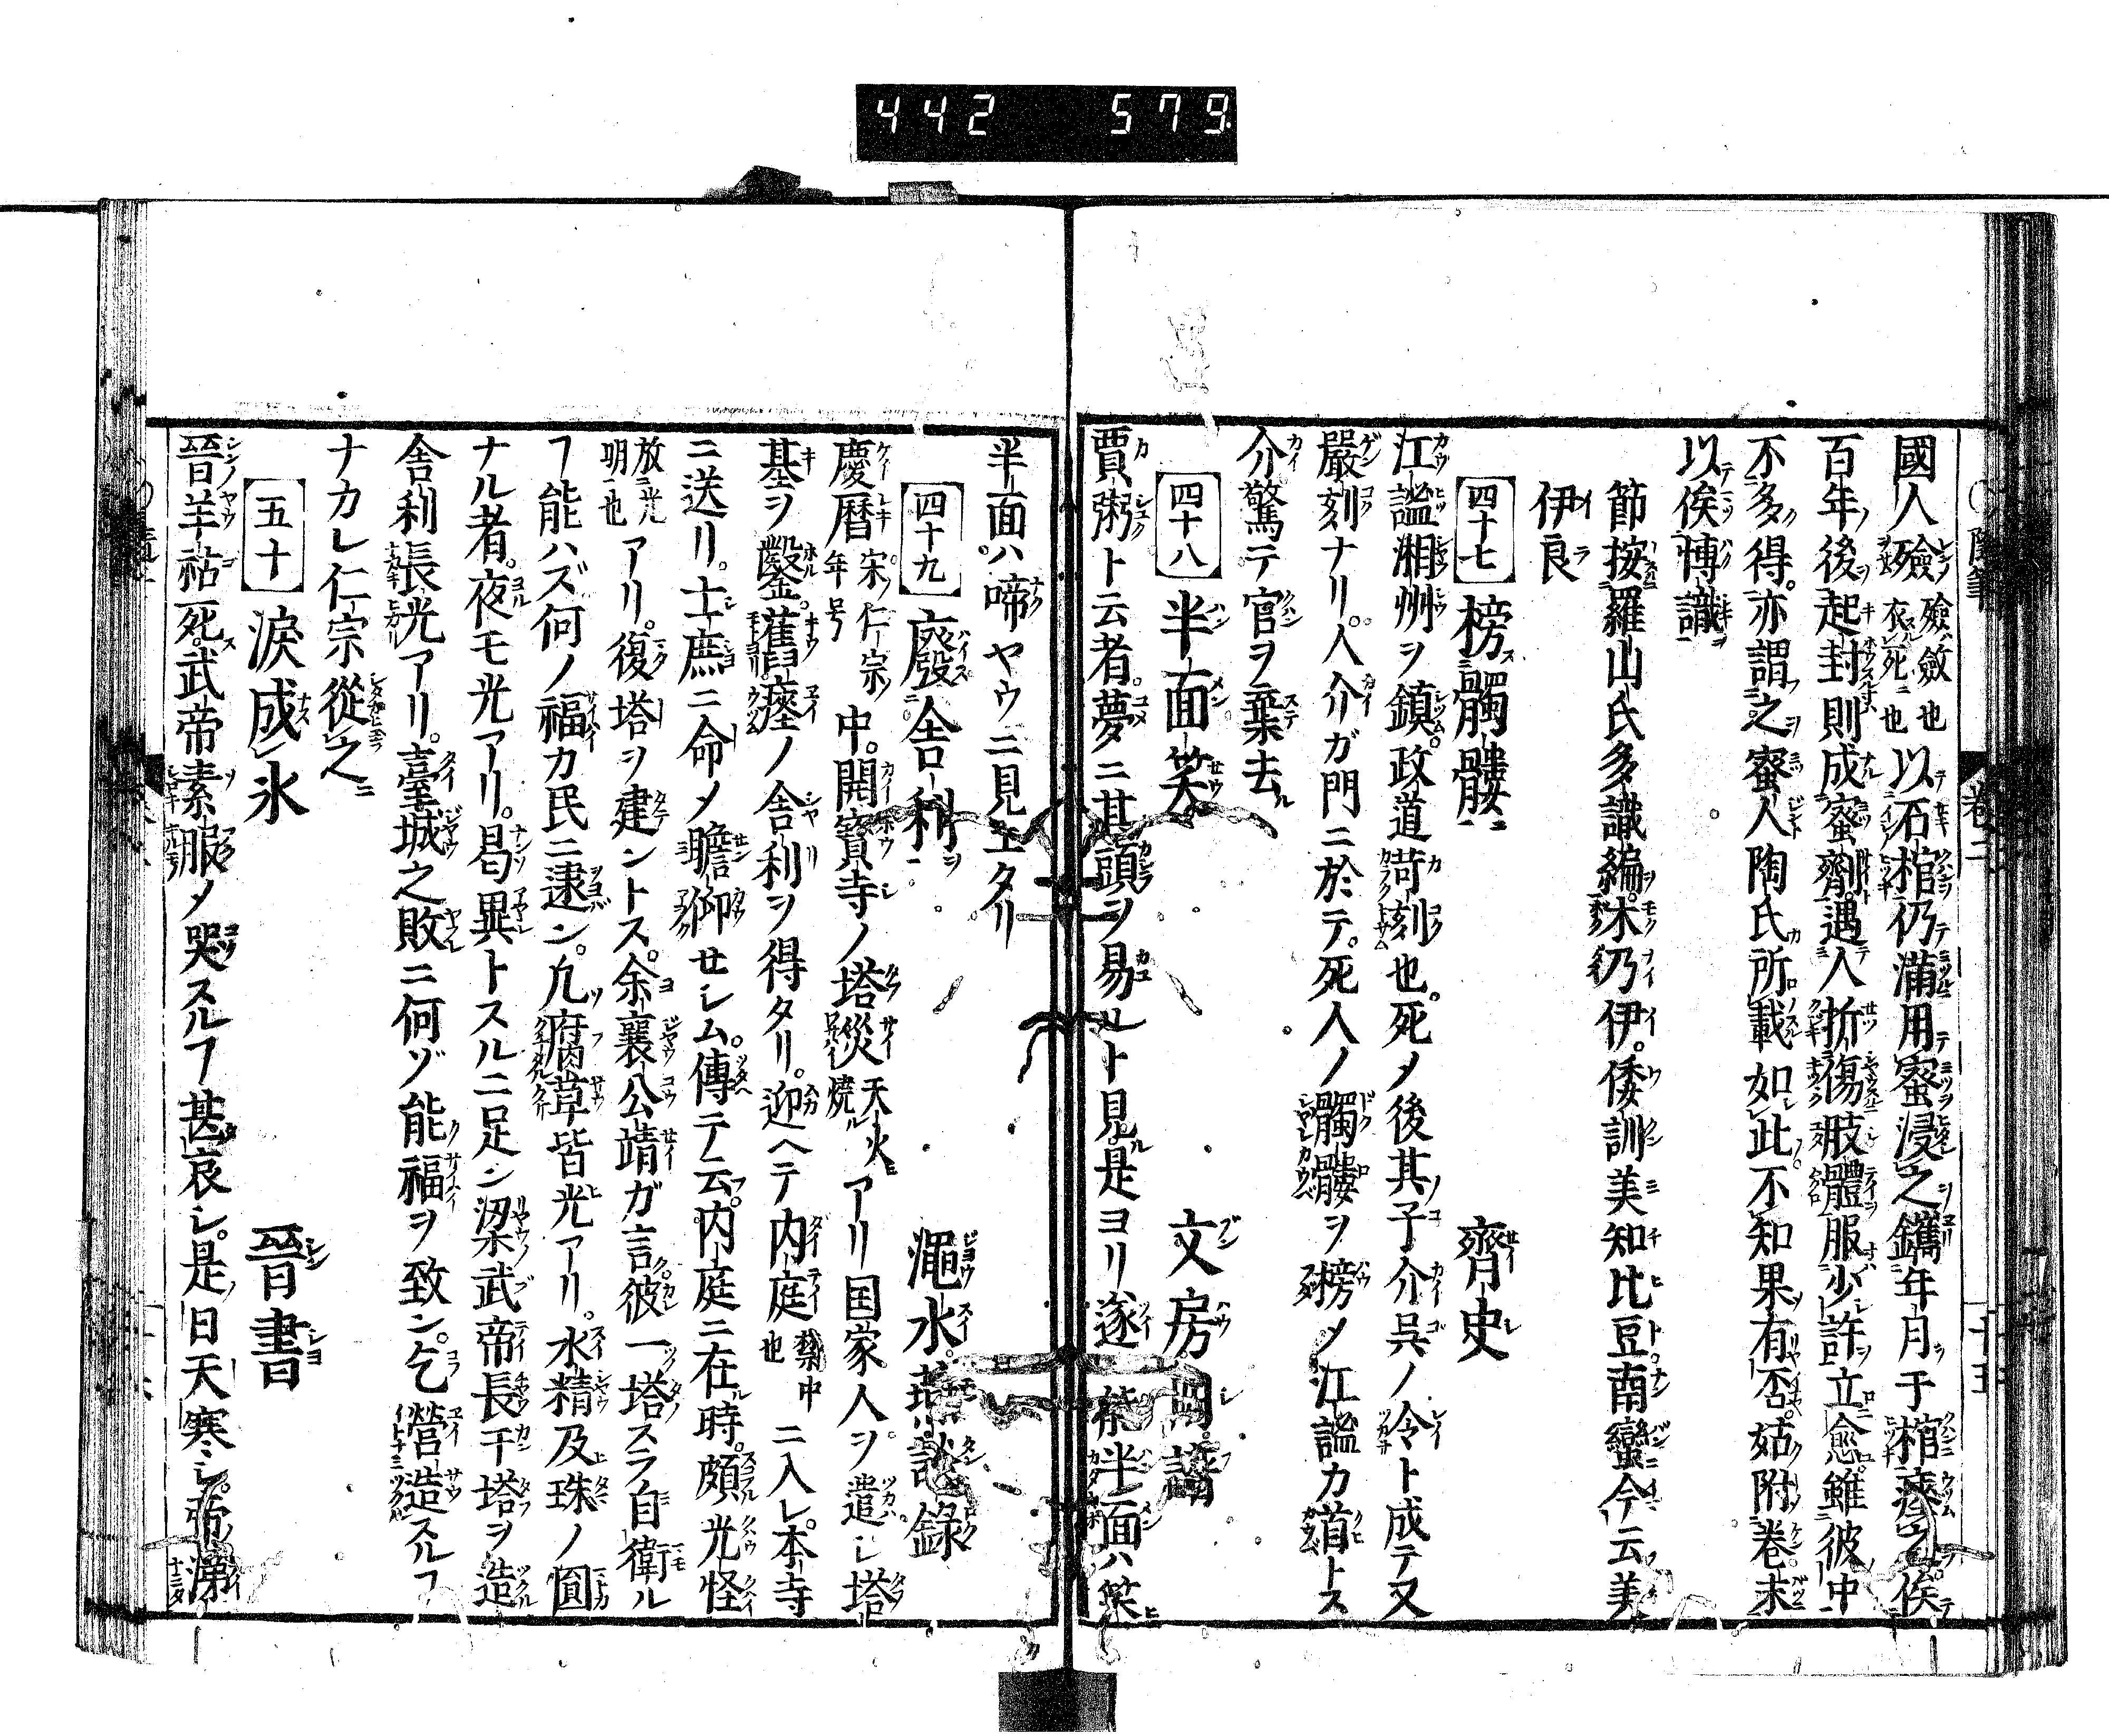 442 579
國人殮殮斂也衣死也以石棺仍滿用蜜浸之鐫年月于棺瘞之俟
百年後起封則成蜜劑遇人折傷肢體服少許立愈雖彼中
不多得亦謂之蜜人陶氏所載如此不知果有否姑附卷末
以俟博識
節按羅山氏多識編木乃伊倭訓美知比豆南蠻今云美
伊良
四十七 榜髑髏 齊史
江謐湘州ヲ鎮政道苛刻也死メ後其子介呉ノ令ト成テ又
嚴刻ナリ人介ガ門ニ於テ死人ノ髑髏ヲ榜メ江謐カ首トス
介驚テ官ヲ棄去
四十八 半面笑 文房四譜
賈弼ト云者夢ニ其頭ヲ易ルト見是ヨリ遂能半面ハ笑
半面ハ啼ヤウニ見エタリ
四十九 廢舎利 澠水燕談録
慶暦宋ノ仁宗ノ年号中開寳寺ノ塔災天火燒アリ国家人ヲ遣レ塔
基ヲ鑿舊瘞ノ舎利ヲ得タリ迎ヘテ内庭禁中也ニ入レ本寺
ニ送リ士庶ニ命メ瞻仰セシム傳テ云内庭ニ在時頗光怪
放光明也アリ復塔ヲ建ントス余襄公靖ガ言彼一塔スラ自衛ル
フ能ハズ何ノ福カ民ニ逮ン凢腐草皆光アリ水精及珠ノ圓
ナル者夜モ光アリ曷異トスルニ足ン梁武帝長干塔ヲ造
舎利長光アリ臺城之敗ニ何ゾ能福ヲ致ン乞營造スルフ
ナカレ仁宗從之
五十 淚成氷 晉書
晉羊祜死武帝素服メ哭スルフ甚哀シ是日天寒シ帝涕